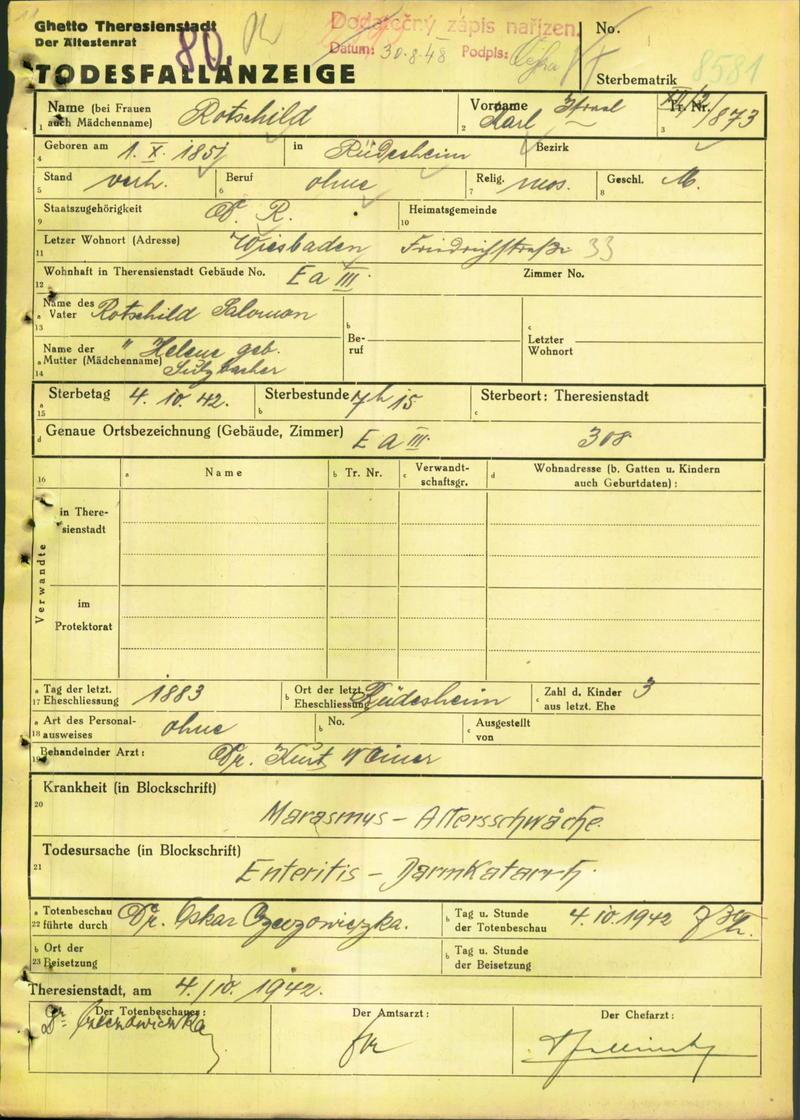 Ghetto Theresienstadt
Der Ältestenrat
80.
Dodatečný zápis nařízen.
Datum: 30.8.48 Podpis:
No.
TODESFALLANZEIGE
Sterbematrik 8581
Name (bei Frauen auch Mädchenname) Rotschild
1
Vorname Karl Israel
2
Tr. Nr. XII/2/873
3
Geboren am 1. X. 1851 in Rüdesheim Bezirk
4
Stand verh. Beruf ohne Relig. mos. Geschl. M.
5 6 7 8
Staatszugehörigkeit D. R. Heimatsgemeinde
9 10
Letzer Wohnort (Adresse) Wiesbaden Friedrichstraße 33
11
Wohnhaft in Therensienstadt Gebäude No. E a III. Zimmer No.
12
Name des Vater Rotschild Salomon
a 13
b Beruf
c Letzter Wohnort
Name der Mutter (Mädchenname) " Helene geb. Sulzbacher
a 14
Sterbetag 4. 10. 42. Sterbestunde 7h 15 Sterbeort: Theresienstadt
a 15 b c
d Genaue Ortsbezeichnung (Gebäude, Zimmer) E a III. 308
16 a Name b Tr. Nr. c Verwandtschaftsgr. d Wohnadresse (b. Gatten u. Kindern auch Geburtdaten) :
Verwandte
in Theresienstadt
im Protektorat
a 17 Tag der letzt. Eheschliessung 1883 b Ort der letzt. Eheschliessung Rüdesheim Zahl d. Kinder c aus letzt. Ehe 3
a 18 Art des Personalausweises ohne b No. c Ausgestellt von
19 Behandelnder Arzt: Dr. Kurt Weiner
Krankheit (in Blockschrift)
20
Marasmus - Altersschwäche.
Todesursache (in Blockschrift)
21
Enteritis - Darmkatarrh.
a 22 Totenbeschau führte durch Dr. Oskar Czeczowiczka. b Tag u. Stunde der Totenbeschau 4.10.1942
b 23 Ort der Beisetzung b Tag u. Stunde der Beisetzung
Theresienstadt, am 4./10. 1942.
Der Totenbeschauer: Der Amtsarzt: Der Chefarzt:
Dr. Czeczowiczka